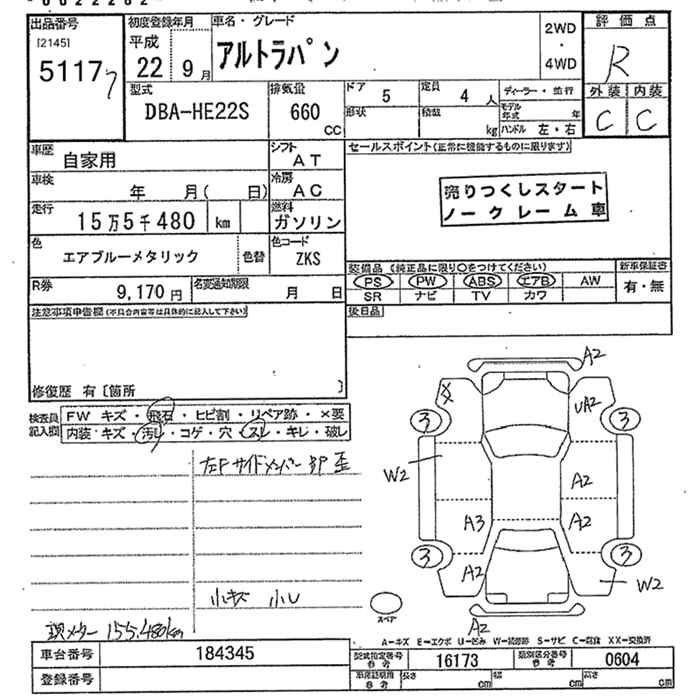 出品番号
[2145]
5117 7
初度登録年月
平成
22 9月
車名・グレード
アルトラパン
2WD
・
4WD
評価点
R
外装 内装
C C
型式
DBA-HE22S
排気量
660
CC
ドア 5
形状
定員 4 人
積載
kg
ディーラー・並行
モデル年式 年
ハンドル 左・右
車歴 自家用
シフト AT
車検 年 月( 日)
冷房 AC
走行 15万5千480 km
燃料 ガソリン
色 エアブルーメタリック 色替
色コード ZKS
R券 9,170円
名変通知期限 月 日
セールスポイント(正常に機能するものに限ります)
売りつくしスタート
ノークレーム車
装備品 (純正品に限り○をつけてください)
新車保証書
PS PW ABS エアB AW
SR ナビ TV カワ
有・無
後日品
注意事項申告欄(不具合内容等は具体的に記入して下さい)
修復歴 有〔箇所 〕
検査員記入欄
FW キズ・飛石・ヒビ割・リペア跡・×要
内装・キズ・汚れ・コゲ・穴・スレ・キレ・破し
左Fサイドメンバー部歪
小キズ 小U
現メーター 155.480km
A2
X
UA2
3 3
W2
A2
A3 A2
3 3
A2
W2
A2
スペア
A-キズ E-エクボ U-凹み W-補修跡 S-サビ C-腐食 XX-交換済
車台番号 184345
登録番号
型式指定番号 参考 16173
類別区分番号 参考 0604
車庫証明用 参考 長さ cm 幅 cm 高さ cm